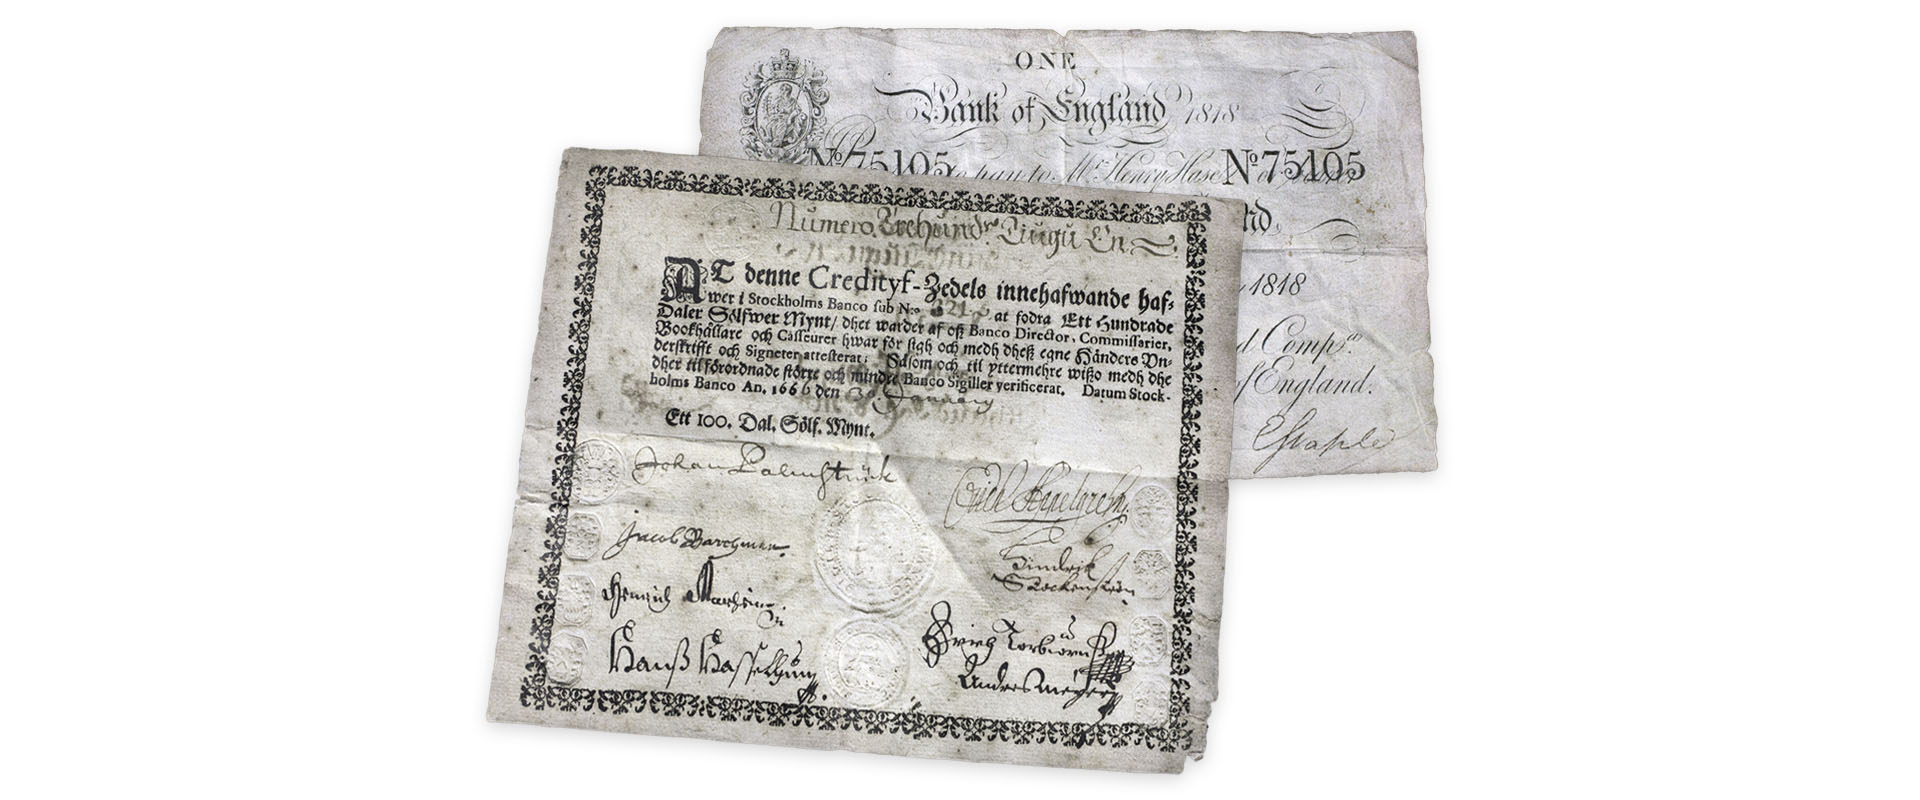 ONE
Bank of England 1818
No 75105 to pay to Mr. Henry Hase No 75105
1818
d Comp.a
of England.
Numero. Trehundr. Tiugu En.
AT denne Credityf-Zedels innehafwande haf-
wer i Stockholms Banco sub N:o 321. at fodra Ett Hundrade
Daler Sölfwer Mynt/ dhet warder af oß Banco Director, Commissarier,
Bookhållare och Casseurer hwar för sigh och medh dheß egne Händers Un-
derskrifft och Signeter attesterat; Såsom och til yttermehre wißo medh dhe
dher til förordnade större och mindre Banco Sigiller verificerat. Datum Stock-
holms Banco An. 1666 den 30. January
Ett 100. Dal. Sölf. Mynt.
Johan Palmstruck
Jacob
Hindrik
Henrich
Hanß
Anders Meijer